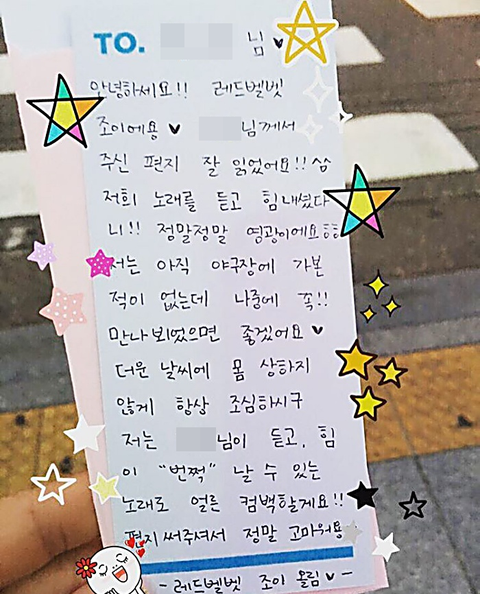 TO. 님♥
안녕하세요!! 레드벨벳
조이에용 ♥ 님께서
주신 편지 잘 읽었어요!! ^^
저희 노래를 듣고 힘내셨다
니!! 정말정말 영광이에요ㅎㅎ
저는 아직 야구장에 가본
적이 없는데 나중에 꼭!!
만나뵈었으면 좋겠어요 ♥
더운 날씨에 몸 상하지
않게 항상 조심하시구
저는 님이 듣고, 힘
이 "번쩍" 날 수 있는
노래로 얼른 컴백할게요!!
편지써주셔서 정말 고마워용
- 레드벨벳 조이 올림♥ -